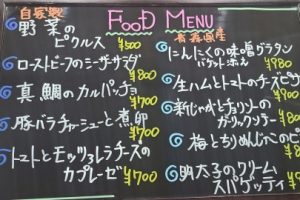 FOOD MENU
自家製
野菜の
ピクルス ¥500
ローストビーフのシーザーサラダ
¥800
真鯛のカルパッチョ
¥700
豚バラチャーシューと煮卵
¥700
トマトとモッツァレラチーズの
カプレーゼ ¥700
青森県産
にんにくの味噌グラタン
バケット添え ¥980
生ハムとトマトのチーズピ
¥980
新じゃがとチョリソーの
ガーリックソテー
¥80
梅とちりめんじゃこのピ
明太子のクリーム
スパゲッティ